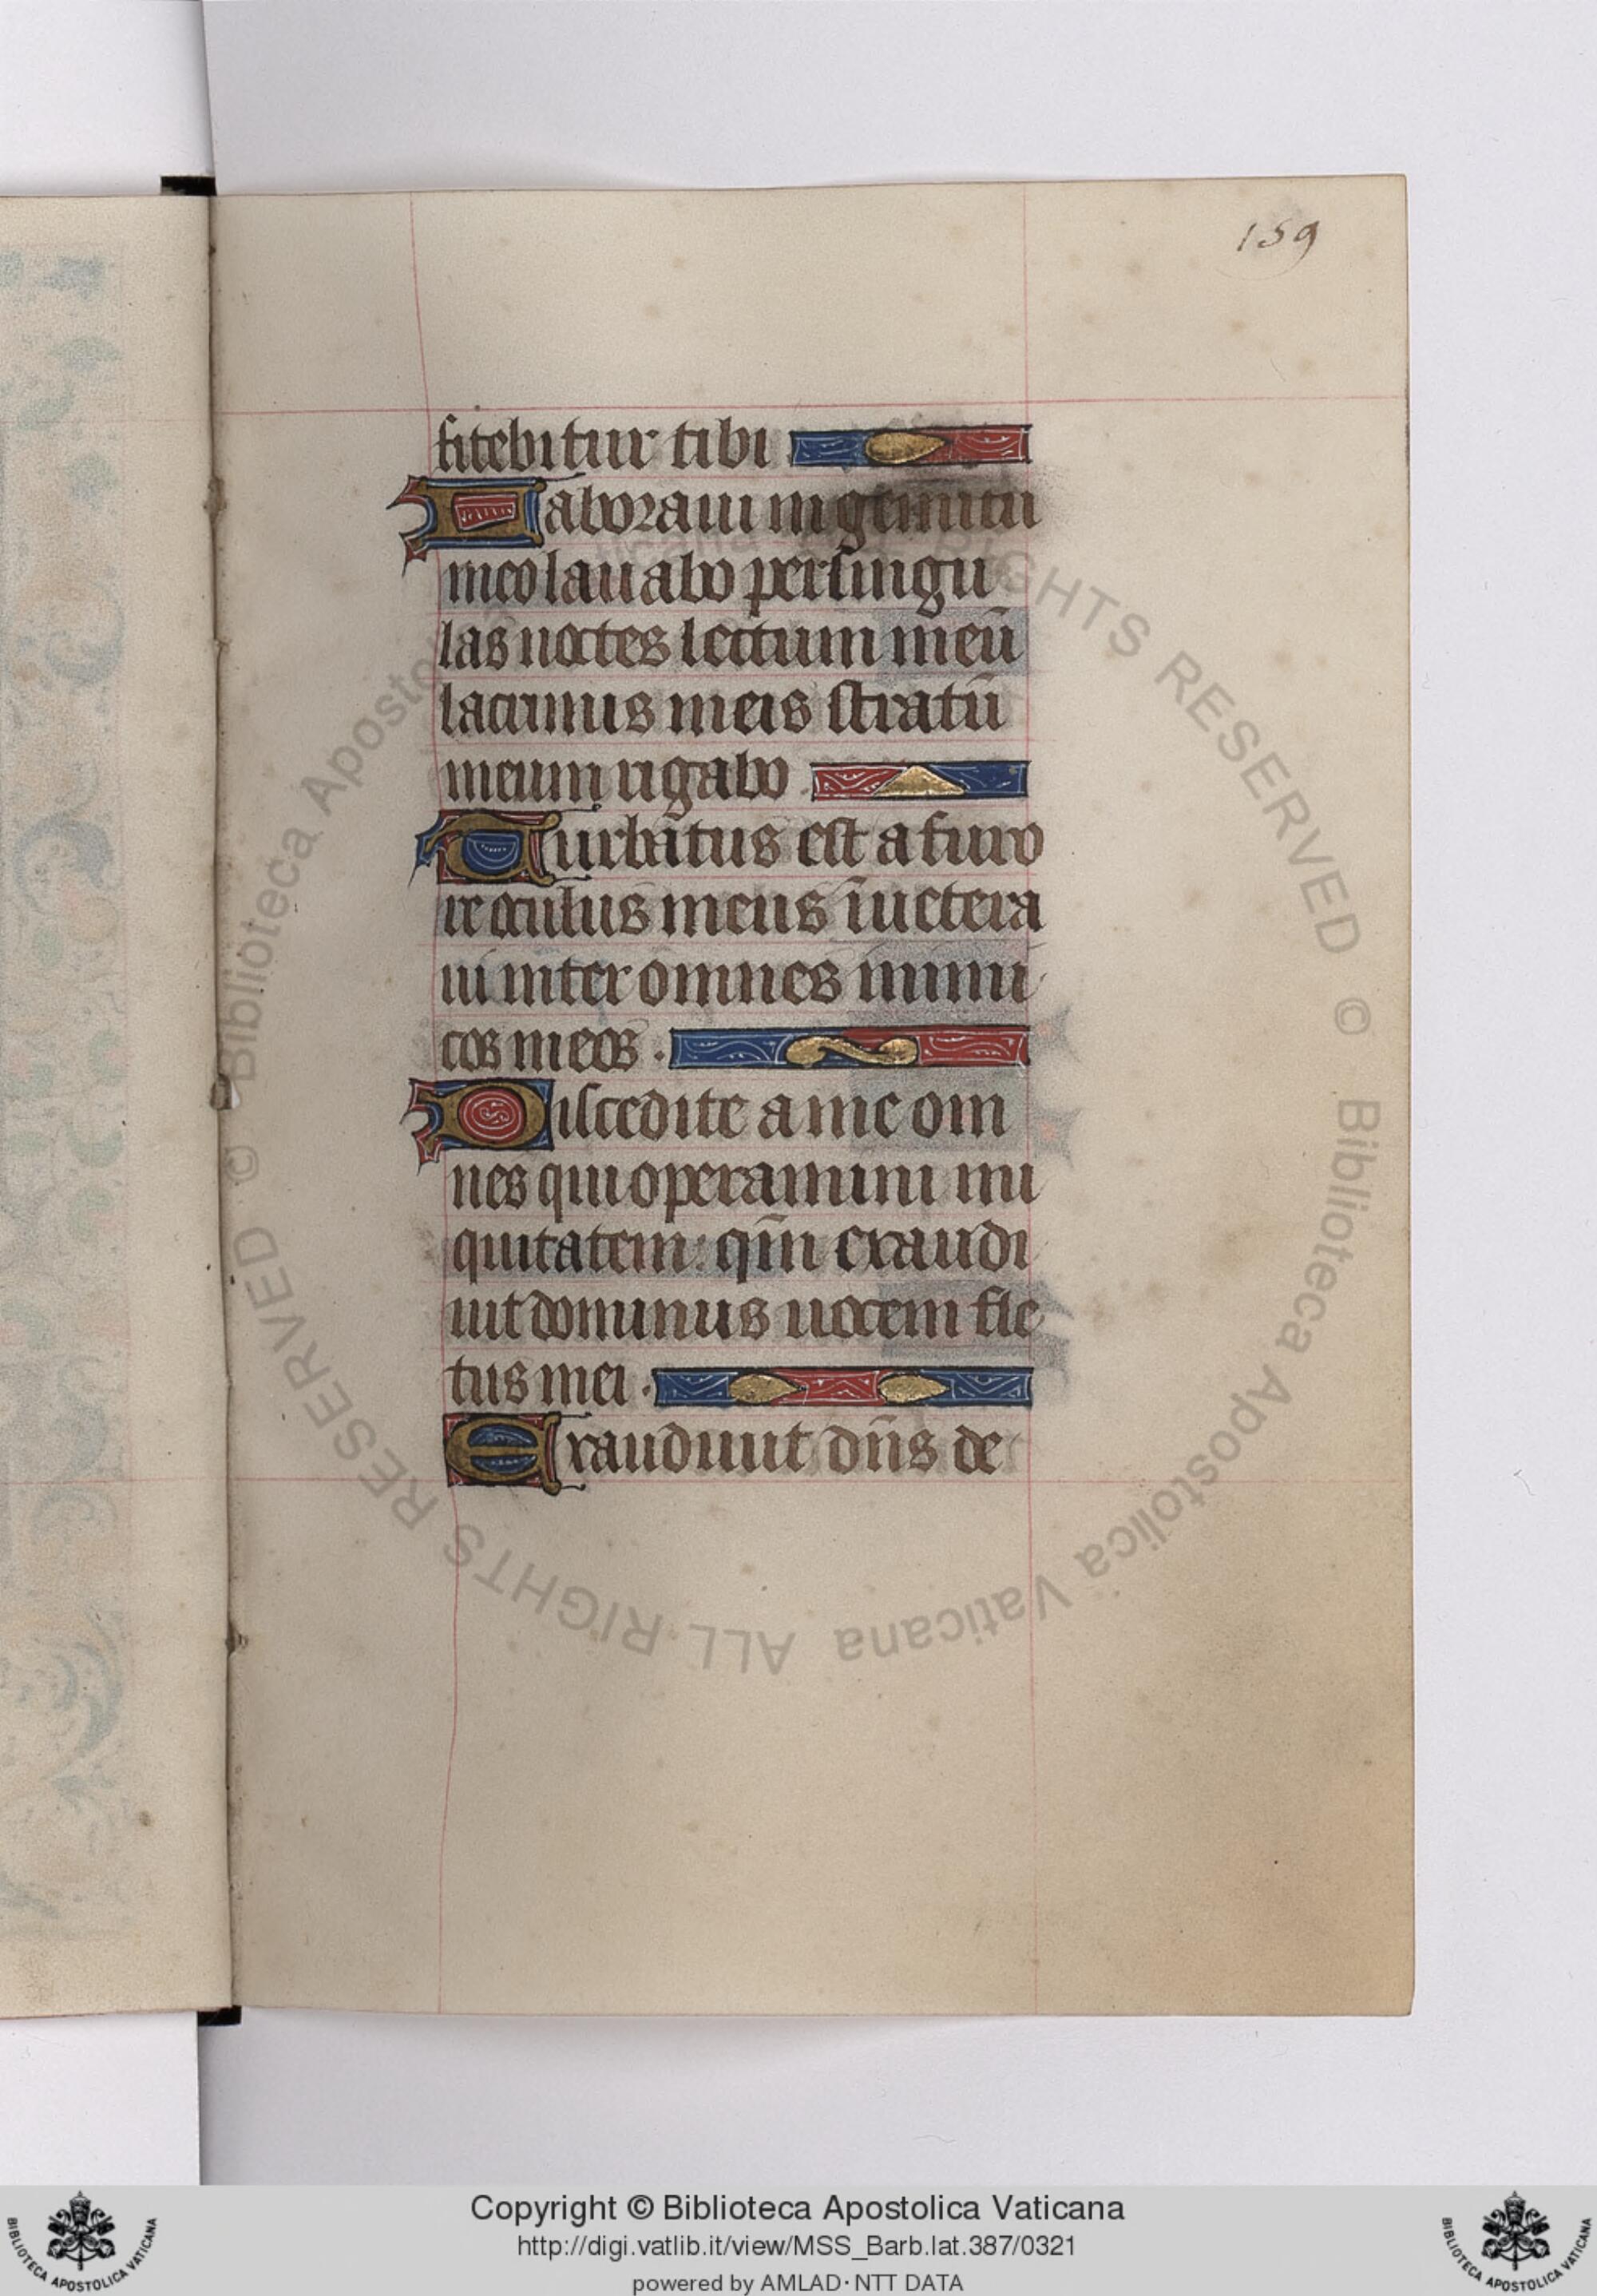 159
fitebitur tibi
Laboraui in gemitu
meo lauabo per singu
las noctes lectum meū
lacrimis meis stratū
meum rigabo.
Turbatus est a furo
re oculus meus īuetera
ui inter omnes inimi
cos meos.
Discedite a me om
nes qui operamini ini
quitatem: qm̄ exaudi
uit dominus uocem fle
tus mei.
Exaudiuit dn̄s de
© Biblioteca Apostolica Vaticana ALL RIGHTS RESERVED
© Biblioteca Apostolica Vaticana ALL RIGHTS RESERVED
Copyright © Biblioteca Apostolica Vaticana
http://digi.vatlib.it/view/MSS_Barb.lat.387/0321
powered by AMLAD·NTT DATA
BIBLIOTECA APOSTOLICA VATICANA
BIBLIOTECA APOSTOLICA VATICANA